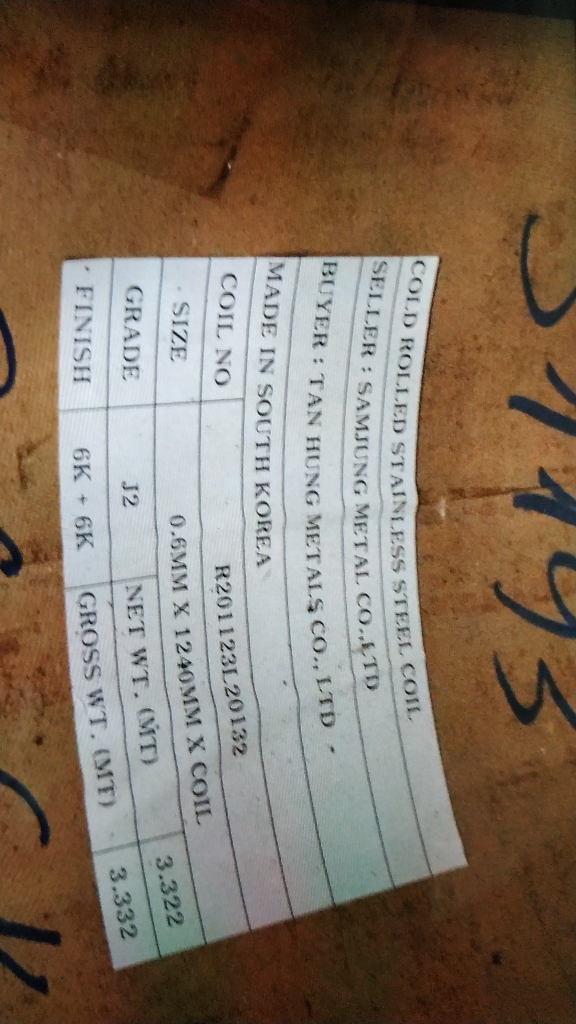 COLD ROLLED STAINLESS STEEL COIL
SELLER : SAMJUNG METAL CO.,LTD
BUYER : TAN HUNG METALS CO., LTD
MADE IN SOUTH KOREA
COIL NO R201123L20132
SIZE 0.6MM X 1240MM X COIL
GRADE J2 NET WT. (MT) 3.322
FINISH 6K + 6K GROSS WT. (MT) 3.332